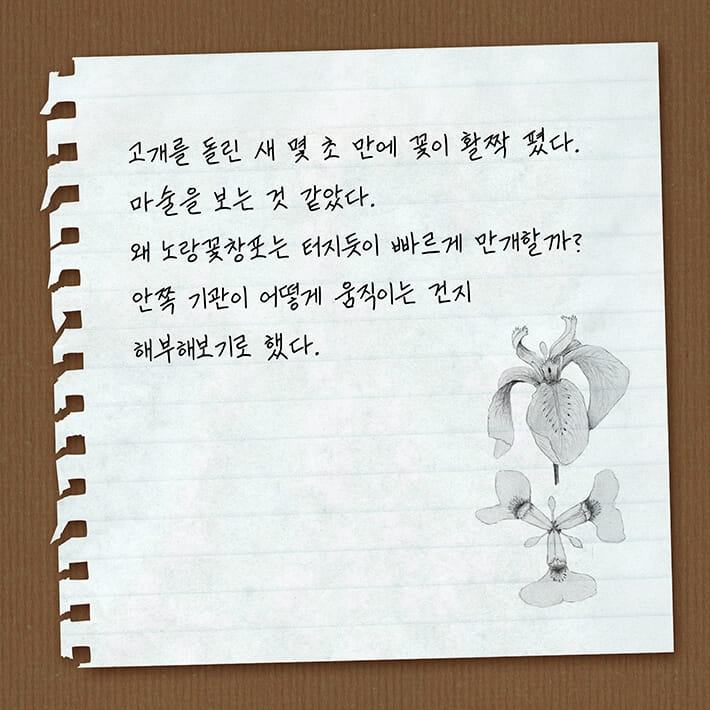 고개를 돌린 새 몇 초 만에 꽃이 활짝 폈다.
마술을 보는 것 같았다.
왜 노랑꽃창포는 터지듯이 빠르게 만개할까?
안쪽 기관이 어떻게 움직이는 건지
해부해보기로 했다.